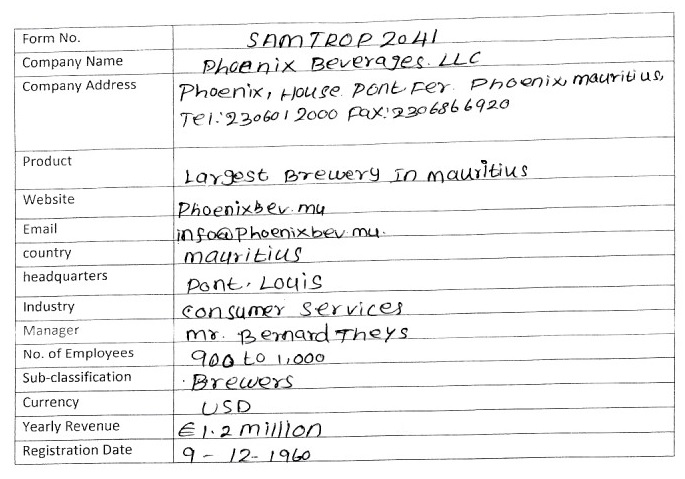 Form No. SAMTROP 2041
Company Name Phoenix Beverages. LLC
Company Address Phoenix, House. Pont Fer. Phoenix, mauritius,
Tel.: 2306012000 Fax: 2306866920
Product Largest Brewery In mauritius
Website Phoenixbev.mu
Email info@Phoenixbev.mu.
country mauritius
headquarters Pont. Louis
Industry Consumer Services
Manager mr. Bernard Theys
No. of Employees 900 to 1,000
Sub-classification Brewers
Currency USD
Yearly Revenue €1.2 million
Registration Date 9 - 12 - 1960